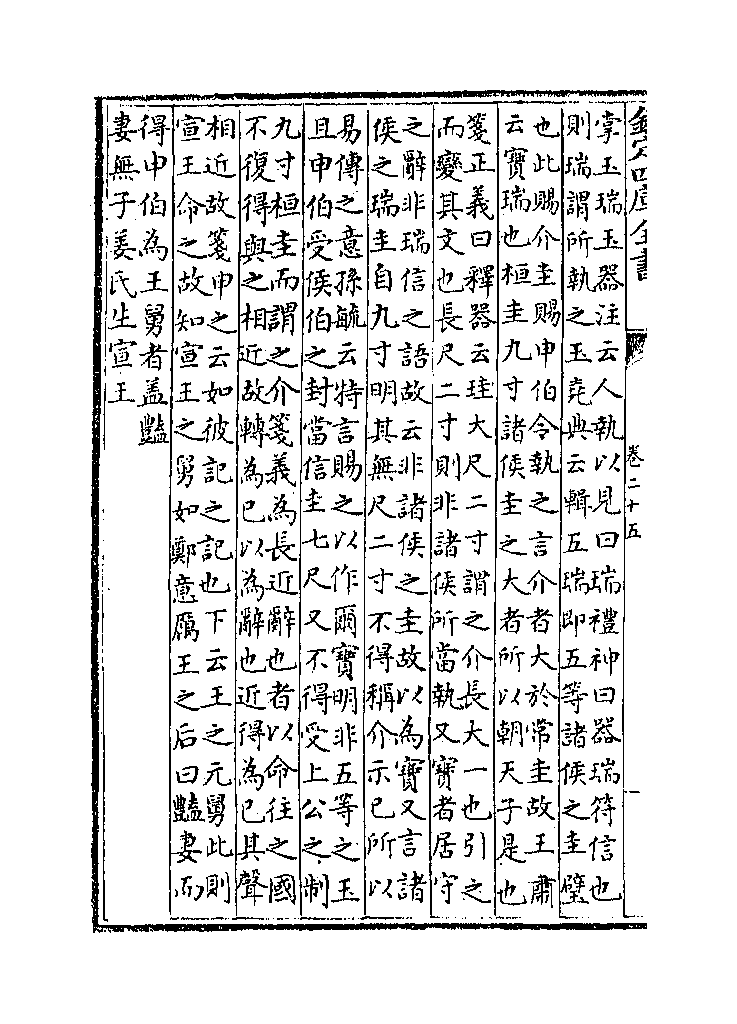 欽定四庫全書
卷二十五
掌玉瑞玉器注云人執以見曰瑞禮神曰器瑞符信也
則瑞謂所執之玉堯典云輯五瑞即五等諸侯之圭璧
也此賜介圭賜申伯令執之言介者大於常圭故王肅
云寳瑞也桓圭九寸諸侯圭之大者所以朝天子是也
箋正義曰釋器云珪大尺二寸謂之介長大一也引之
而變其文也長尺二寸則非諸侯所當執又寳者居守
之辭非瑞信之語故云非諸侯之圭故以為寳又言諸
侯之瑞圭自九寸明其無尺二寸不得稱介示已所以
易傳之意孫毓云特言賜之以作爾寳明非五等之玉
且申伯受侯伯之封當信圭七尺又不得受上公之制
九寸桓圭而謂之介箋義為長近辭也者以命往之國
不復得與之相近故轉為已以為辭也近得為已其聲
相近故箋申之云如彼記之記也下云王之元舅此則
宣王命之故知宣王之舅如鄭意厲王之后曰豔妻而
得申伯為王舅者盖豔
妻無子姜氏生宣王